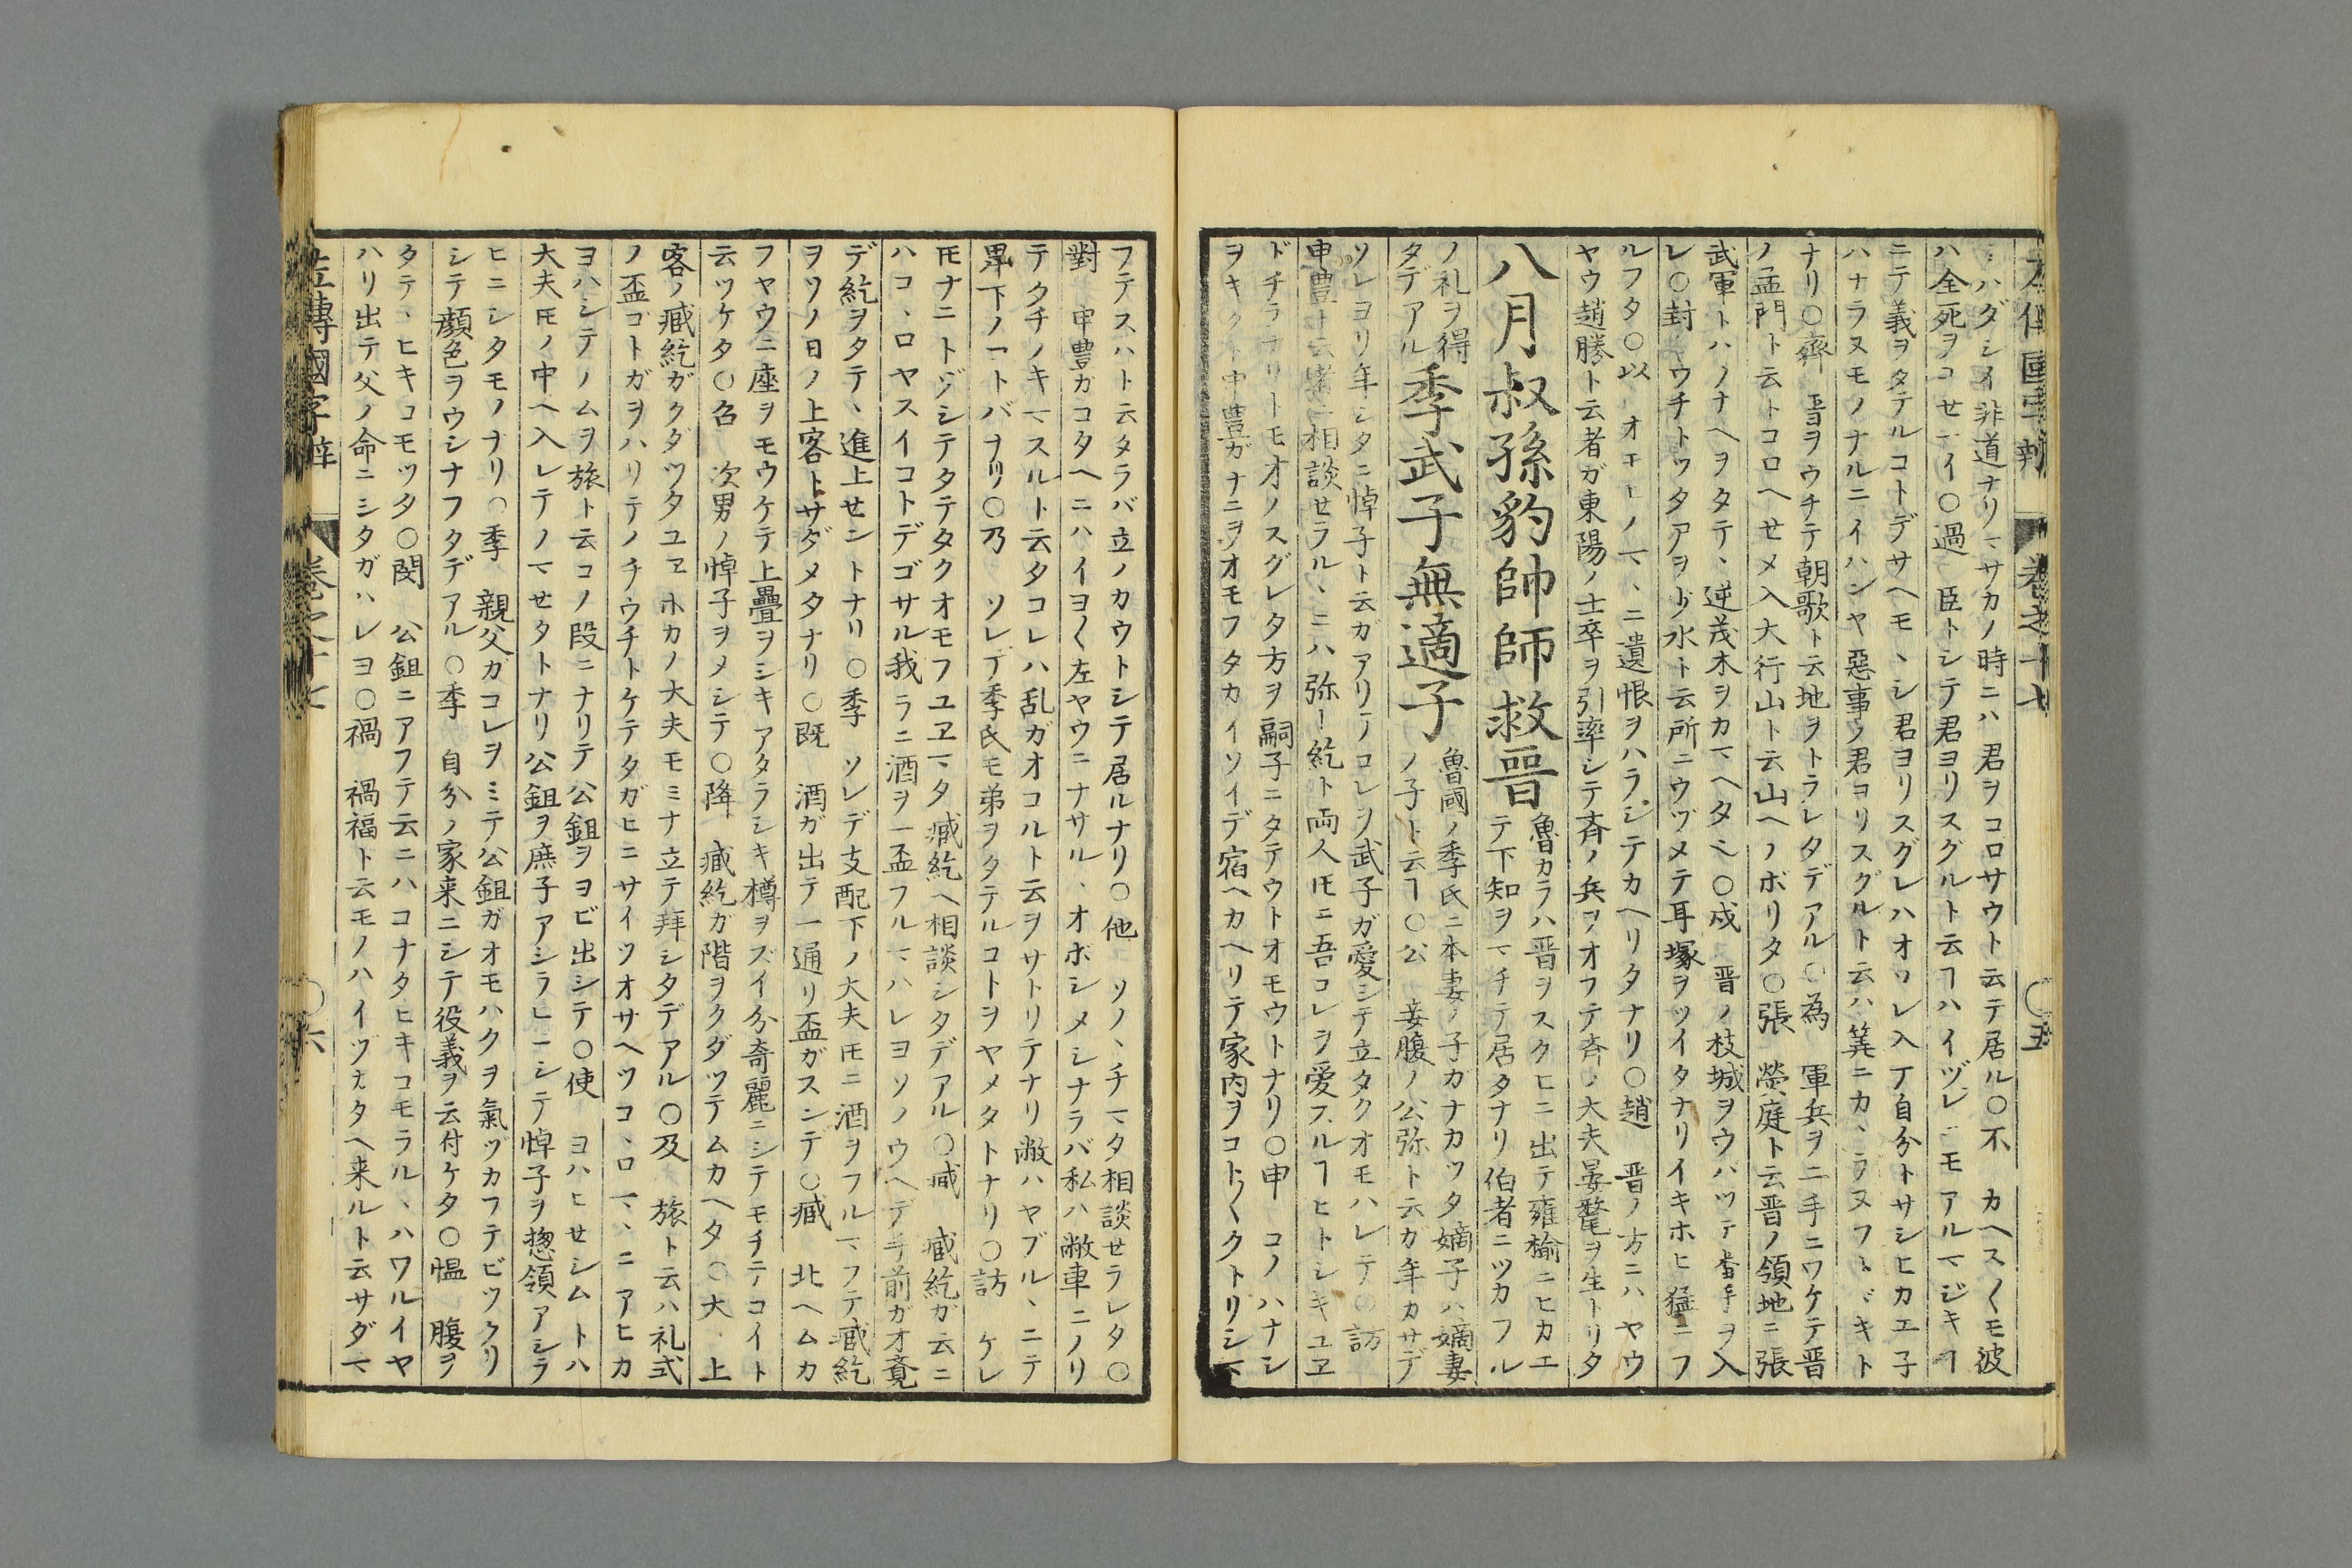 ハダシイ非道ナリマサカノ時ニハ君ヲコロサウト云テ居ル○不 カヘス〱モ彼
ハ全死ヲコセマイ○過 臣トシテ君ヨリスグルト云ヿハイヅレニモアルマジキヿ
ニテ義ヲタテルコトデサヘモヽシ君ヨリスグレハオソレ入丁自分トサシヒカエ子
ハナラヌモノナルニイハンヤ惡事ノ君ヨリスグルト云ハ筭ニカヽラヌフヽヾキト
ナリ○齊 晋ヲウチテ朝歌ト云地ヲトラレタデアル○為 軍兵ヲ二手ニワケテ晋
ノ孟門ト云トコロヘセメ入大行山ト云山ヘノボリタ○張 熒庭ト云晋ノ領地ニ張
武軍トハノナヘヲタテヽ逆茂木ヲカマヘタヘ○成 晋ノ枝城ヲウバツテ番手ヲ入
レ○封 ウチトツタアヲ少水ト云所ニウヅメテ耳塚ヲツイタナリイキホヒ猛ニフ
ルフタ○以 オモヒノマヽニ遺恨ヲハラシテカヘリタナリ○趙 晋ノ方ニハヤウ
ヤウ趙勝ト云者ガ東陽ノ士卒ヲ引率シテ斉ノ兵ヲオフテ斉ノ大夫晏氂ヲ生トリタ
八月叔孫豹帥師救晉
魯カラハ晋ヲスクヒニ出テ雍榆ニヒカエ
テ下知ヲマチテ居タナリ伯者ニツカフル
ノ礼ヲ得
タデアル
季武子無適子
魯國ノ季氏ニ本妻ノ子ガナカツタ嫡子ハ嫡妻
ノ子ト云ヿ○公 妾腹ノ公弥ト云カ年カサデ
ソレヨリ年シタニ悼子ト云ガアリテノコレヲ武子ガ愛シテ立タクオモハレテ○訪
申豊ト云業ニ相談セラルヽニハ弥ト紇ト両人𪜈ニ吾コレヲ愛スルヿヒトシキユヱ
ドチラナリトモオノスグレタ方ヲ嗣子ニタテウトオモウトナリ○申 コノハナシ
ヲキクト申豊カナニヲオモフタカイソイデ宿ヘカヘリテ家内ヲコト〱クトリシマ
フテスハト云タラバ立ノカウトシテ居ルナリ○他 ソノヽチマタ相談セラレタ○
對 申豊ガコタヘニハイヨ〱左ヤウニナサルヽオボシメシナラバ私ハ敝車ニノリ
テタチノキマスルト云タコレハ乱ガオコルト云ヲサトリテナリ敝ハヤブルヽニテ
畢下ノコトバナリ○乃 ソレデ季氏モ弟ヲタテルコトヲヤメタトナリ○訪 ケレ
𪜈ナニトゾシテタテタクオモフユヱマタ臧紇ヘ相談シタデアル○臧 臧紇ガ云ニ
ハコヽロヤスイコトデゴサル我ラニ酒ヲ一盃フルマハレヨソノウヘデ手前ガオ竟
デ紇ヲタテヽ進上セントナリ○季 ソレデ支配下ノ大夫𪜈ニ酒ヲフルマフテ臧紇
ヲソノ日ノ上客トサダメタナリ○既 酒ガ出テ一通リ盃ガスンデ○臧 北ヘムカ
フヤウニ座ヲモウケテ上疊ヲシキアタラシキ樽ヲズイ分奇麗ニシテモチテコイト
云ツケタ○召 次男ノ悼子ヲメシテ○降 臧紇ガ階ヲクダツテムカヘタ○大 上
客ノ臧紇ガクダツタユヱホカノ大夫モミナ立テ拜シタデアル○及 旅ト云ハ礼式
ノ盃ゴトガヲハリテノチウチトケテタガヒニサイツオサヘツコヽロマヽニアヒカ
ヨハシテノムヲ旅ト云コノ段ニナリテ公鉏ヲヨビ出シテ○使 ヨハヒセシムトハ
大夫𪜈ノ中ヘ入レテノマセタトナリ公鉏ヲ庶子アシラヒニシテ悼子ヲ惣領アシラ
ヒニシタモノナリ○季 親父ガコレヲミテ公鉏ガオモハクヲ氣ヅカフテビツクリ
シテ顔色ヲウシナフタデアル○季 自分ノ家来ニシテ役義ヲ云付ケタ○慍 腹ヲ
タテヽヒキコモツタ○閔 公鉏ニアフテ云ニハコナタヒキコモラルヽハワルイヤ
ハリ出テ父ノ命ニシタガハレヨ○禍 禍福ト云モノハイヅカタヘ来ルト云サダマ
左傳國字辯 卷之十七 ○六